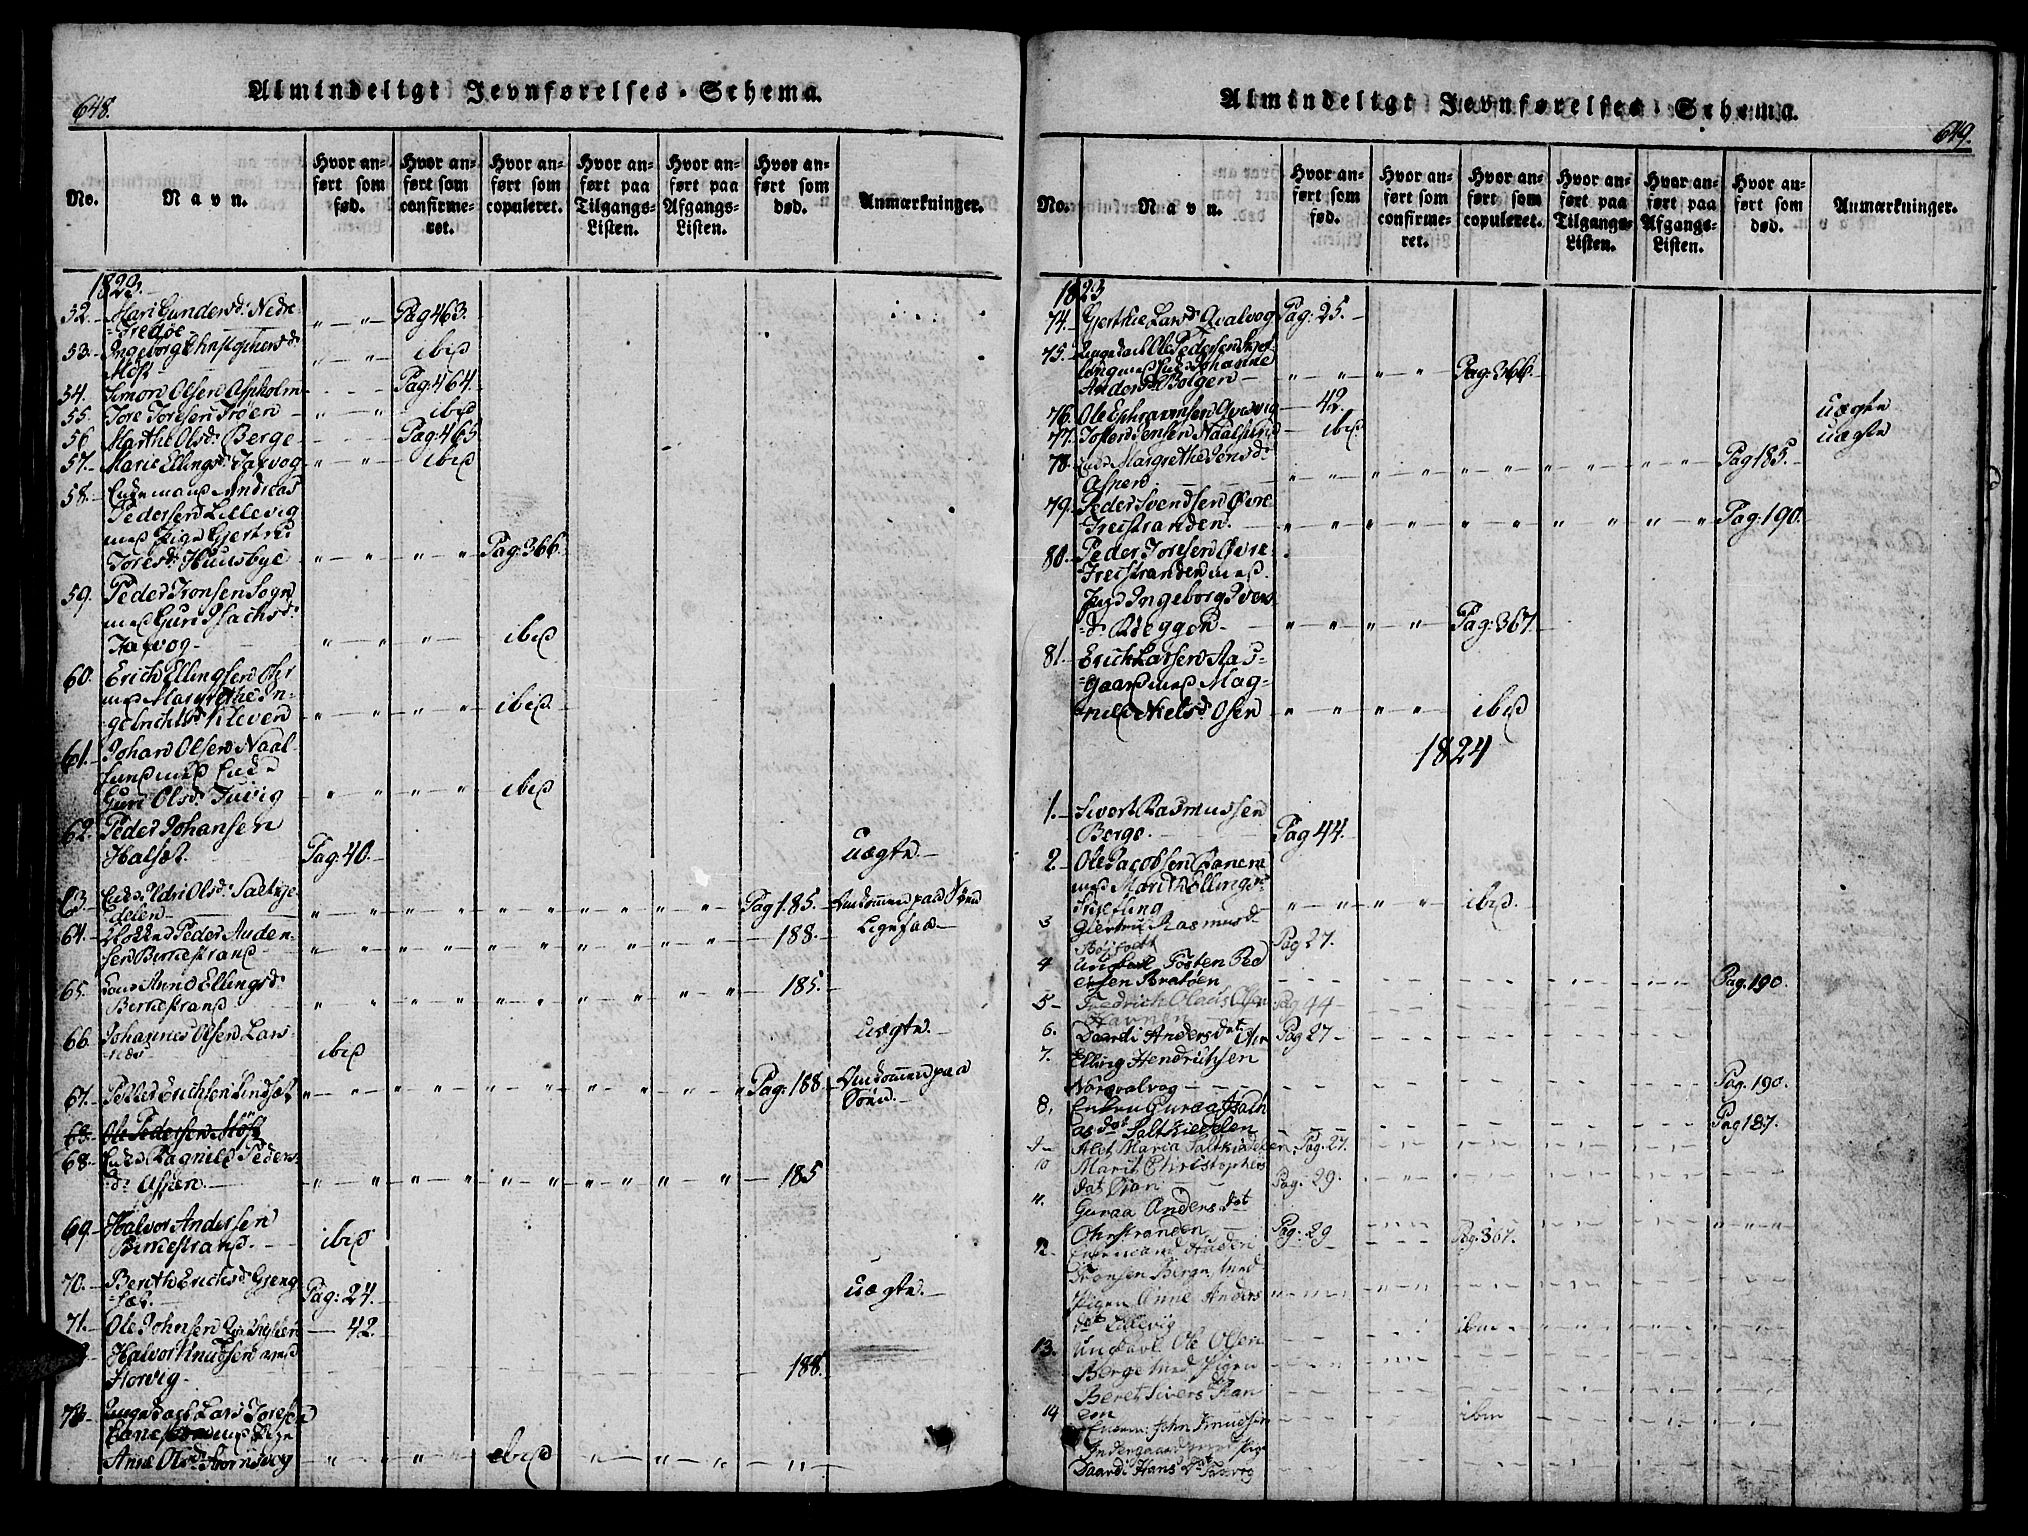 648.
Almindeligt Jevnførelses-Schema.
No.
Navn.
Hvor anført som fød.
Hvor anført som confirmeret.
Hvor anført som copuleret.
Hvor anført paa Tilgangs-Listen.
Hvor anført paa Afgangs-Listen.
Hvor anført som død.
Anmærkninger.
1823.
52. Mari Gundersd. Nedre Pag 463.
Fredøe
53. Ingeborg Christophersd. ibid
54. Simon Olsen Aspholm Pag: 464.
55. Tore Toresen ibid
56. Marthe Olsd. Berge Pag: 465
57. Marie Ellingsd. ibid
58. Enkemand Andreas
Pedersen Lillevig
med Pige Gjertru
Toresd. Huusbye Pag: 366.
59. Peder Tronsen Sogn
med Guri Isachsd.
ibid
60. Erich Ellingsen
med Margrethe In-
gebrichtsd. Kleven ibid.
61. Johan Olsen Naal-
sund med Enke
Guri Olsd. ibid
62. Peder Johansen
Halset. Pag: 40. uægte.
63. Ildri Olsd. Saltkje-
delen Pag 185. Omkommen paa Søen
64. Peder Anden-
sen Birkestrand 188. Ligesaa
65. Anne Ellingsd.
Birkestrand 185.
66. Johannes Olsen Lars-
næs ibid uægte.
67. Petter Erichsen Lindsæt Pag: 188 Omkommen paa
Søen.
63. Ole Pedersen
68. Ragnild Peders-
d. Aspen 185
69. Halvor Andersen
Birkestrand. ibid
70. Berith Erichsd. Gjeng-
sæt. Pag: 24. uægte.
71. Ole Johnsen 42.
Halvor Knudsen
188.
Ungekarl Lars Toresen
med Pige
Anne Olsd. ibid
649.
Almindeligt Jevnførelses-Schema.
No.
Navn.
Hvor anført som fød.
Hvor anført som confirmeret.
Hvor anført som copuleret.
Hvor anført paa Tilgangs-Listen.
Hvor anført paa Afgangs-Listen.
Hvor anført som død.
Anmærkninger.
1823
74. Gjerthie Larsd. Qvalvog Pag: 25.
75. Ungekarl Ole Pedersen
med Johanne
Andersd. Bolgen Pag: 366.
76. Ole Ephraimsen 42. uægte
77. Jensen Naalsund ibid uægte
78. Margrethe Jensd.
Aspen Pag 185.
79. Peder Svendsen Øvre
Freistranden. Pag: 190.
80. Peder Toresen Øvre
Freistranden med
Ingeborg Ivers
d. Pag: 367.
81. Erich Larsen Aas-
gaard med Mag-
nild Nielsd. Osen ibid
1824
1. Sivert Rasmussen
Berge. Pag 44.
2. Ole Jacobsen
med Marith Ellingsd.
ibid.
3 Giertru Rasmusd.
Pag 27.
4 Ungkarl Tosten Ped
ersen Bratøen Pag. 190.
5 Fredrich Olaus Olsen Pag 44
Havnen
6. Daardi Andersdat Pag 27
7. Elling Hendrichsen
Pag. 190.
8. Enken Guraa Isach
as dat Saltkiedelen Pag 187.
9 Maria Saltkiedelen Pag. 27.
10 Marit Christophers
dat Pag. 29.
11. Guraa Anders dat
Ohrstranden Pag. 29
12. Enkemand Pag. 367.
Tronsen Berge med
Pigen Anne Anders
dat Lillevig ibm
13. Ungkarl Ole Olsen
Berge med Pigen
Beret Sivers
14 John Knudsen ibm
med Pige
Daardi Hans dat